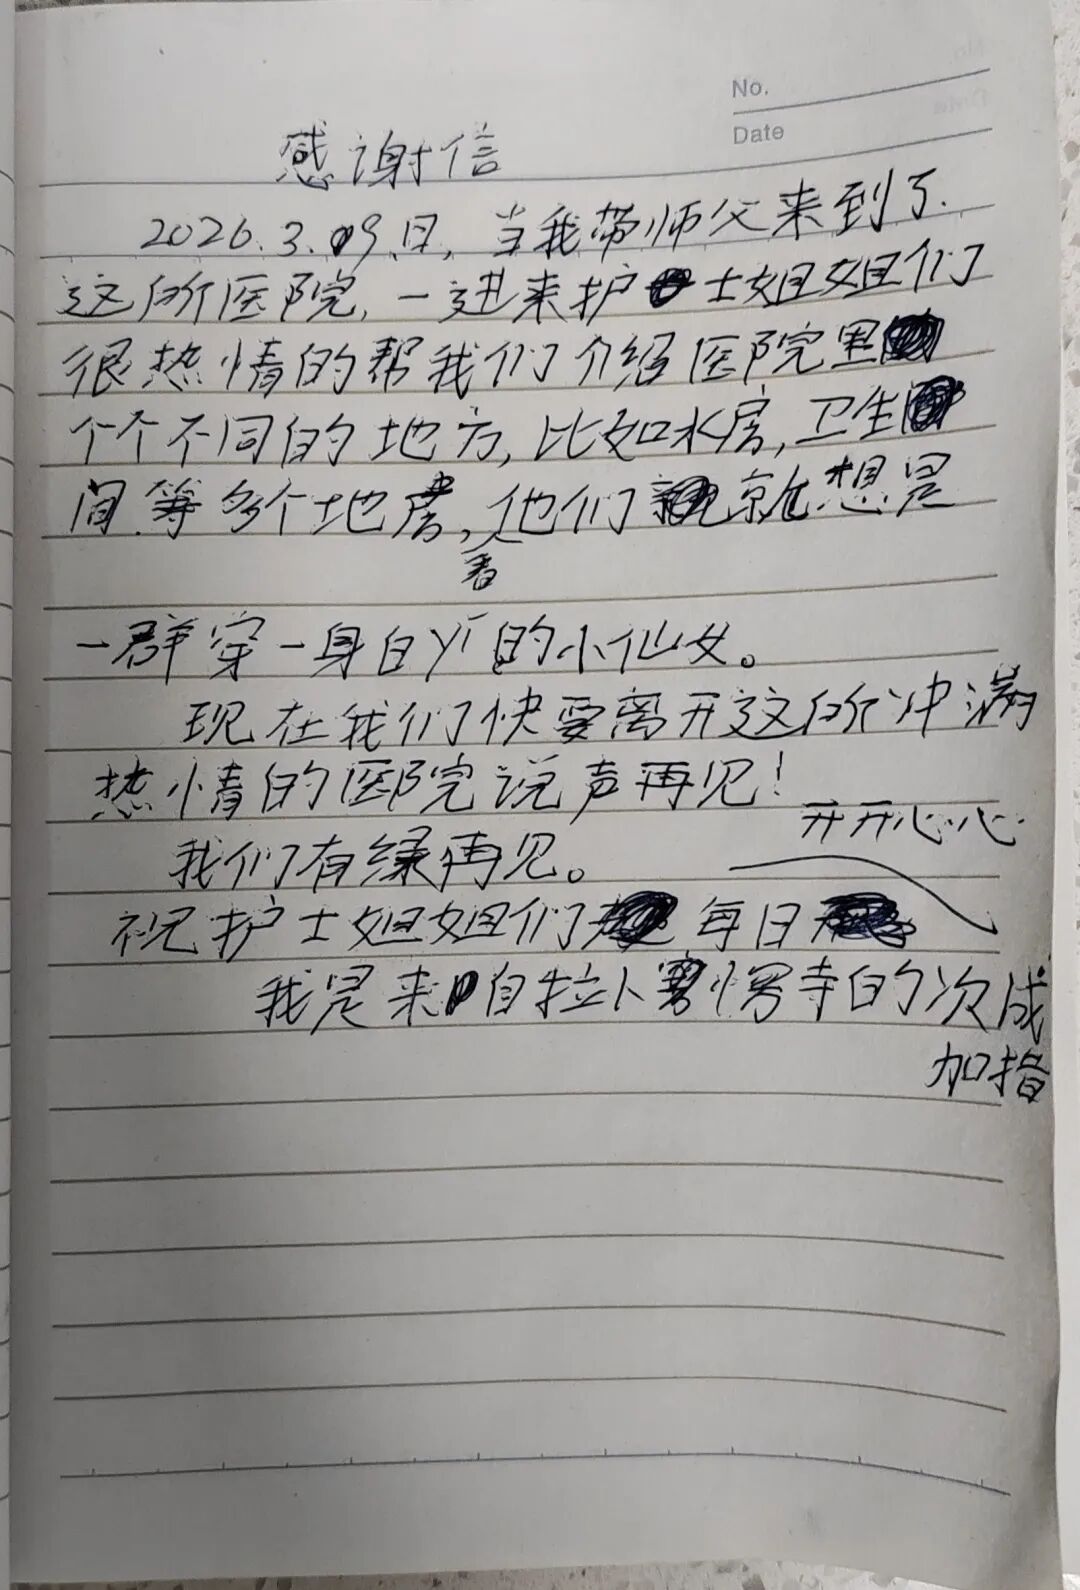 No.
Date
感谢信
2026.3.09.日,当我带师父来到了.
这所医院,一进来护士姐姐们
很热情的帮我们介绍医院里
个个不同的地方,比如水房,卫生
间等多个地房,他们就想是
看
一群穿一身白yī的小仙女。
现在我们快要离开这所冲满
热情的医院说声再见!
开开心心
我们有缘再见。
祝护士姐姐们每日
我是来自拉卜愣寺的次成
加措